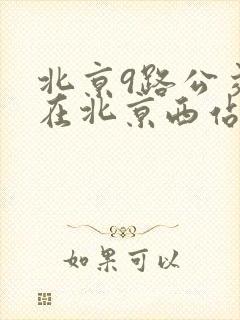 北京9路公交
在北京西站
如果可以